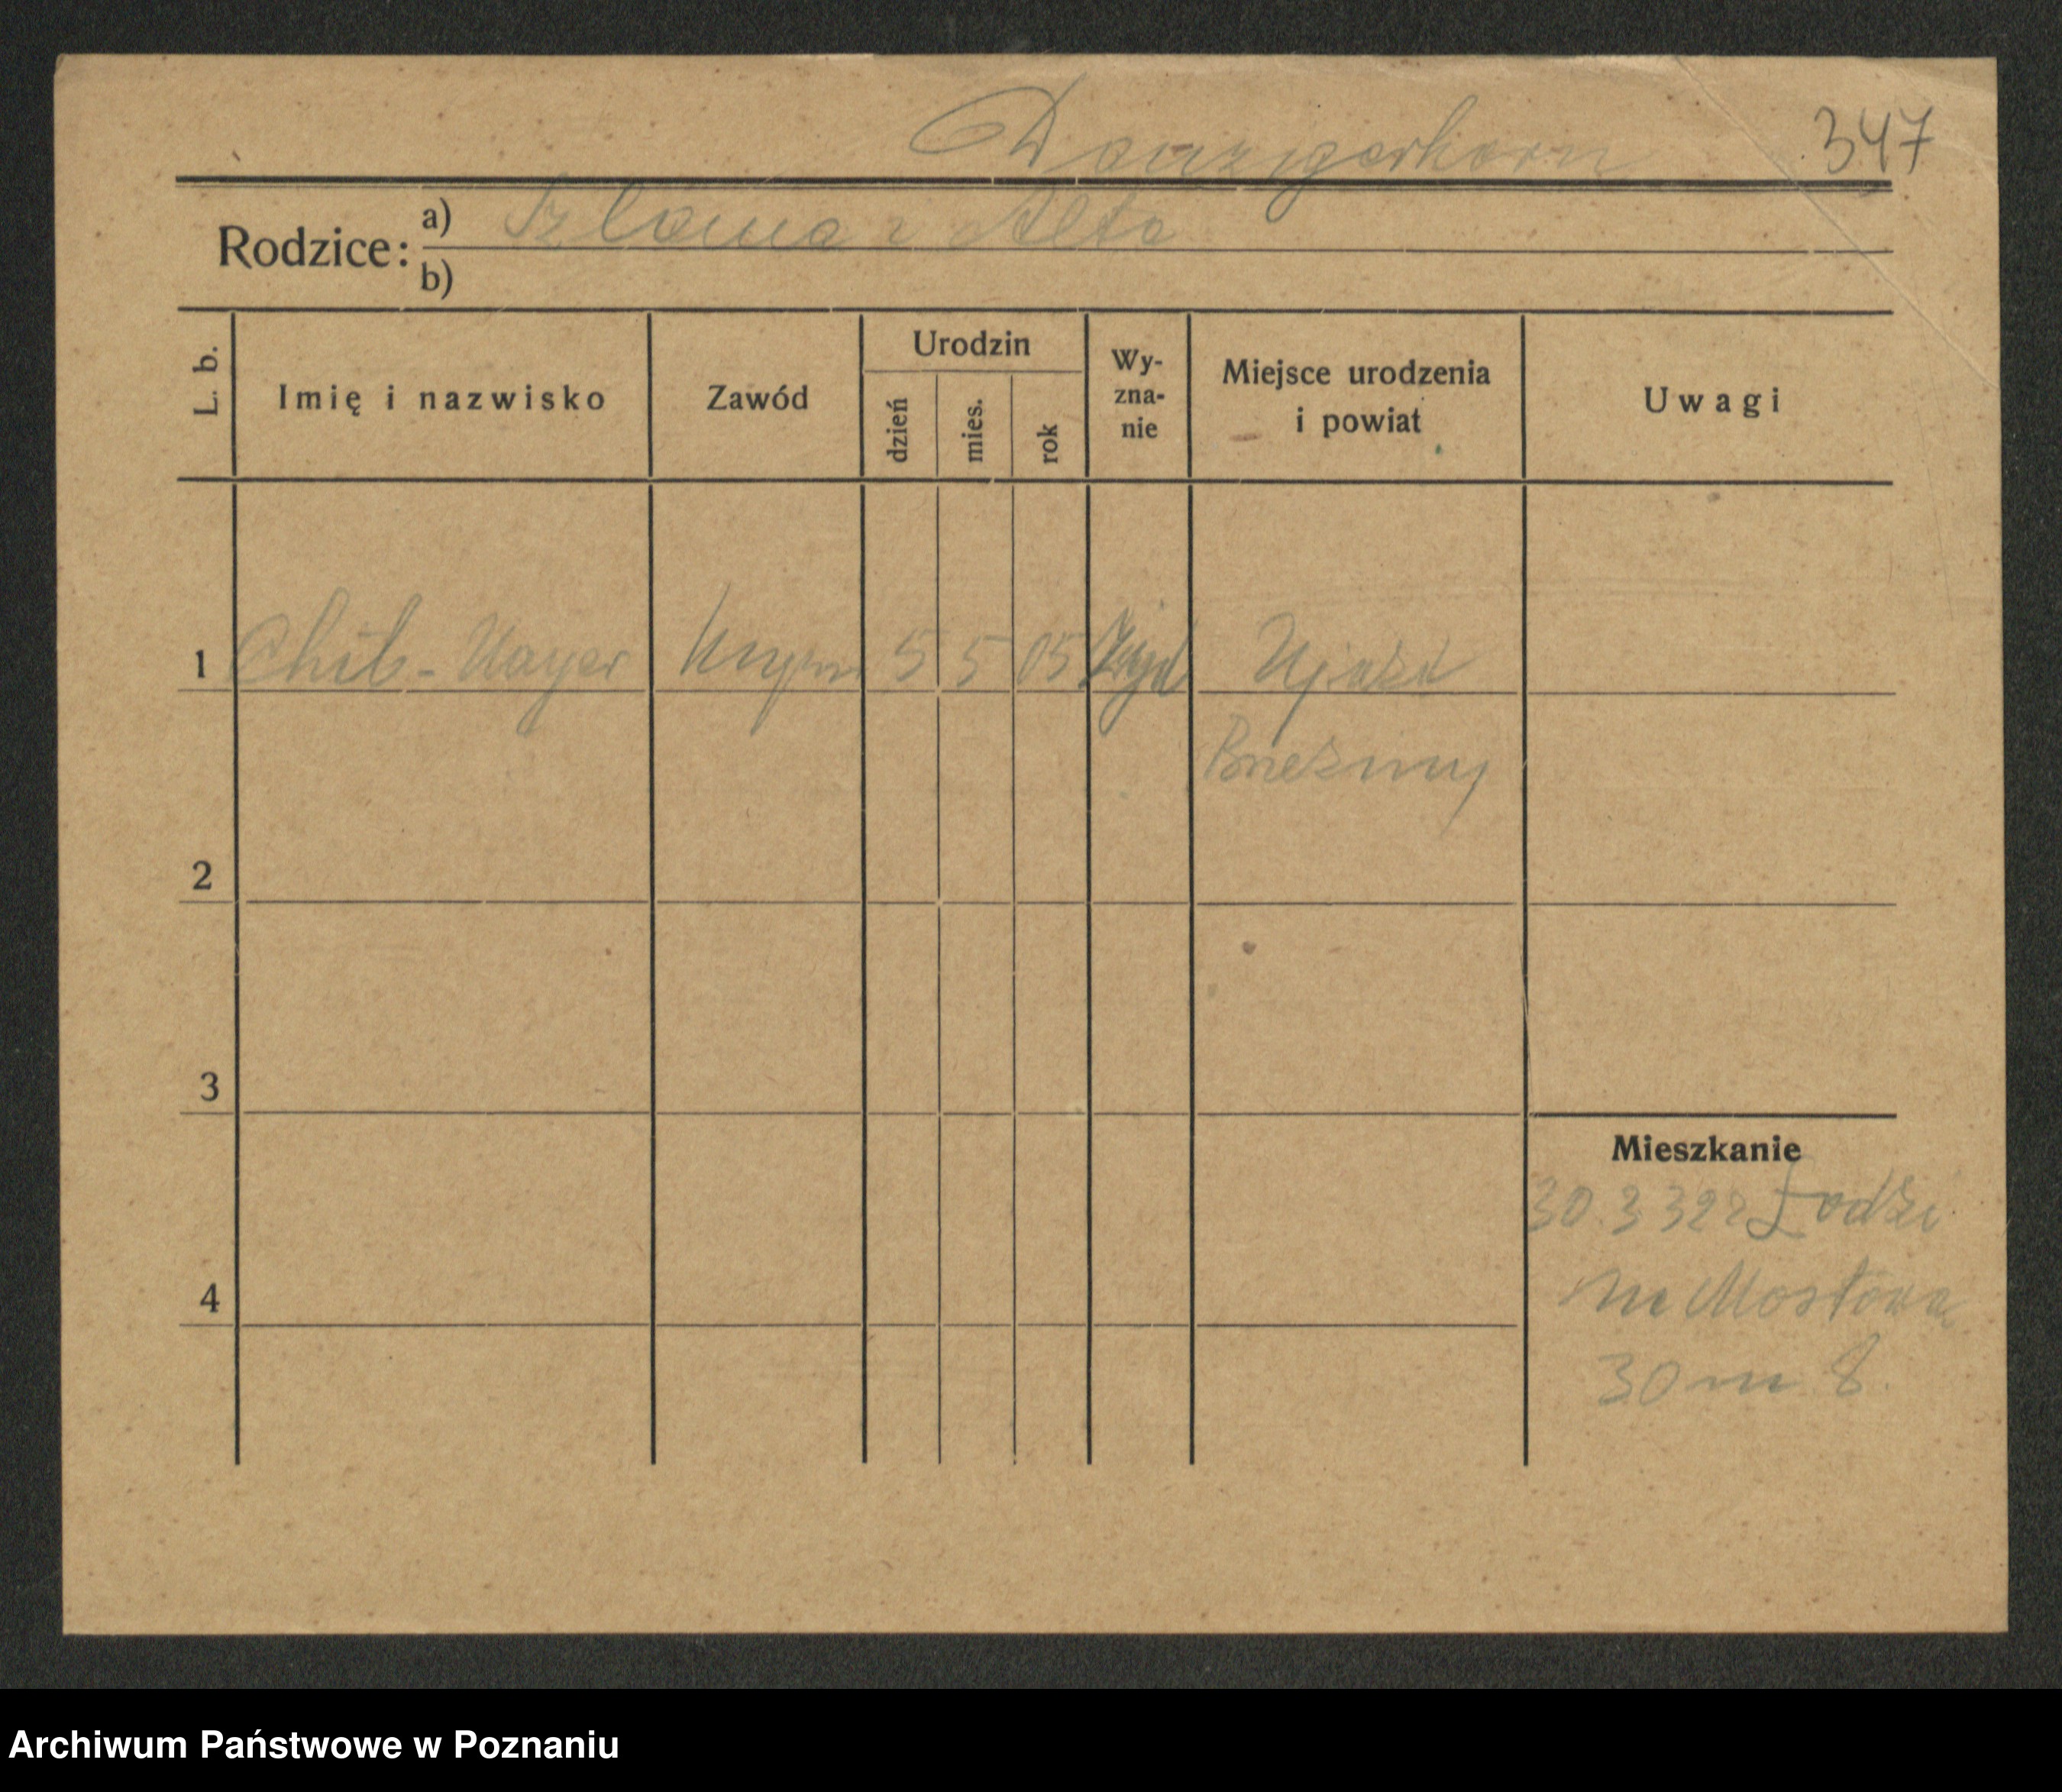 347
Rodzice:
a) Szlama i Alta
b)
L. b.
Imię i nazwisko
Zawód
Urodzin
dzień
mies.
rok
Wy-
zna-
nie
Miejsce urodzenia
i powiat
Uwagi
1 Chil - Mayer 5 5 05 Ujazd
Brzeziny
2
3
4
Mieszkanie
30.3 32 z Łodzi
na Mostową
30 m 8.
Archiwum Państwowe w Poznaniu